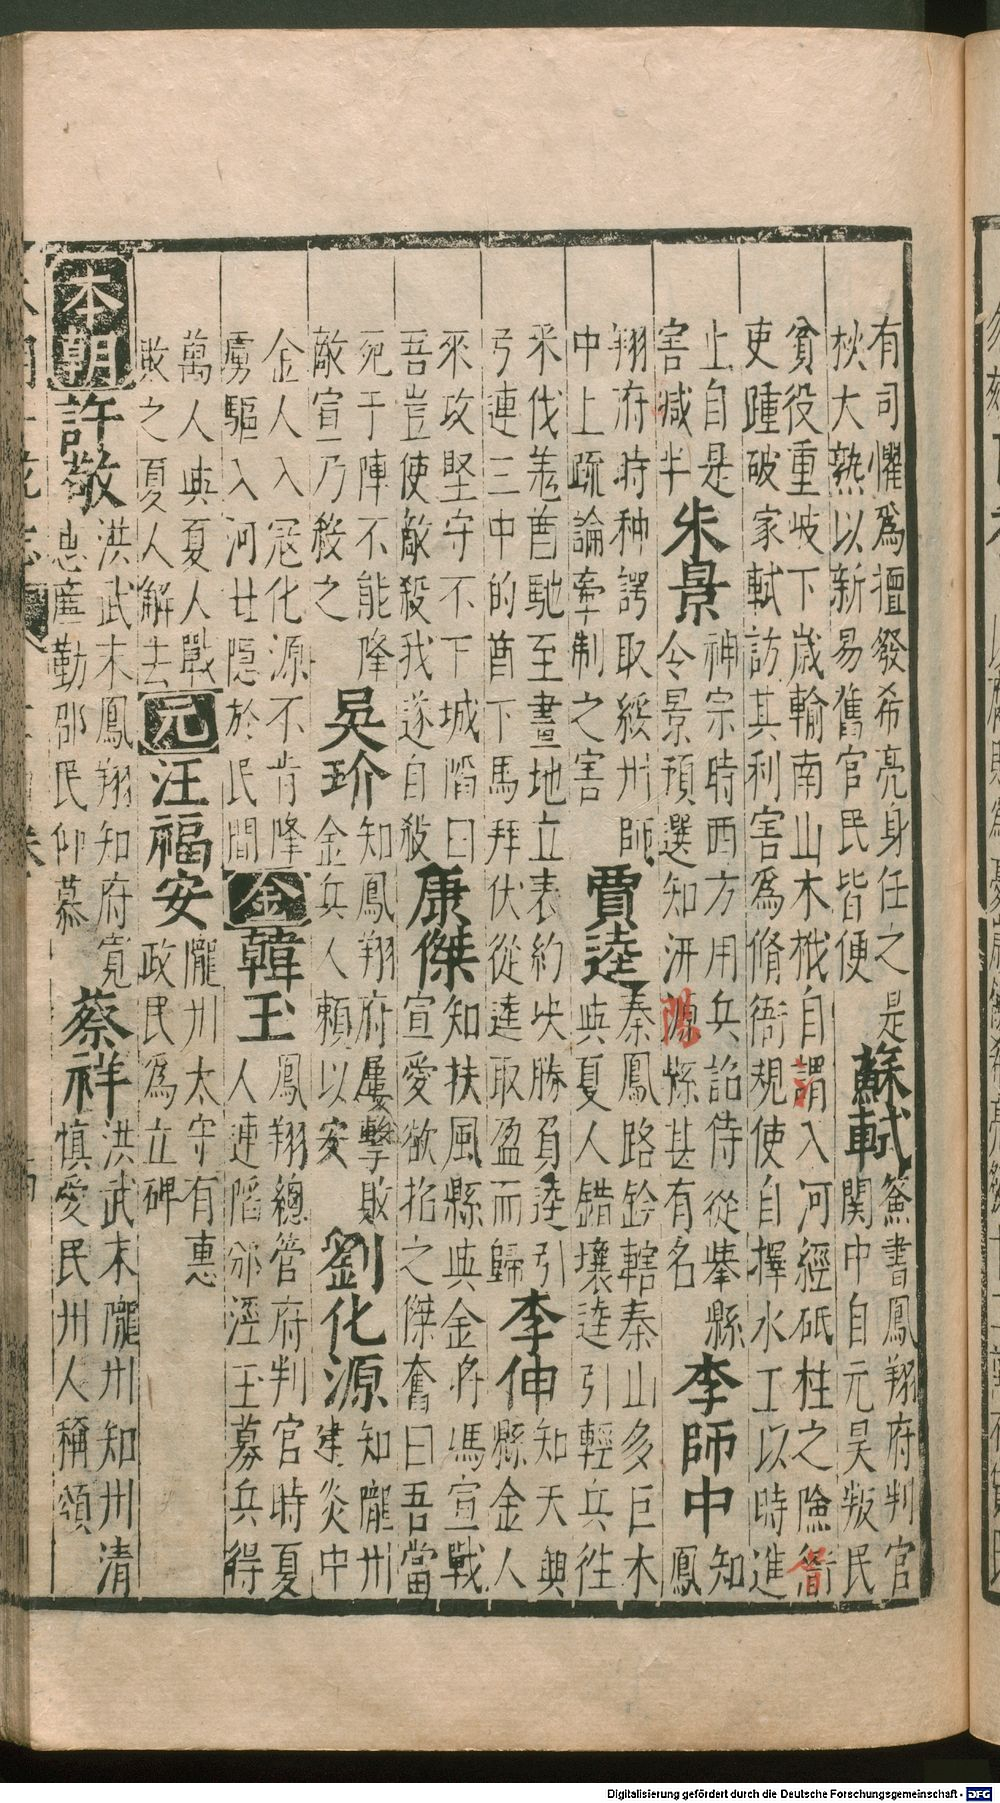 有司懼為擅發希亮身任之是
秋大熟以新易舊官民皆便
蘇軾
簽書鳳翔府判官
関中自元昊叛民
貧役重岐下歲輸南山木栰自謂入河經砥柱之險衙
吏踵破家軾訪其利害為脩衙規使自擇水工以時進
止自是
害減半
朱景
神宗時西方用兵詔侍從舉縣
令景預選知汧源縣甚有名
李師中
知
鳳
翔府時种諤取綏州師
中上疏論牽制之害
賈逵
秦鳳路鈐轄秦山多巨木
與夏人錯壤逵引輕兵往
采伐羗酋馳至畫地立表約决勝負逵引
弓連三中的酋下馬拜伏從逵取盈而歸
李伸
知天興
縣金人
來攻堅守不下城䧟曰
吾豈使敵殺我遂自殺
康傑
知扶風縣與金將馮宣戰
宣愛欲招之傑奮曰吾當
死于陣不能降
敵宣乃殺之
吳玠
知鳳翔府屢擊敗
金兵人頼以安
劉化源
知隴州
建炎中
金人入冦化源不肯降
虜驅入河廿隠於民間
金
韓玉
鳳翔總管府判官時夏
人連䧟邠涇玉募兵得
萬人與夏人戰
敗之夏人解去
元
汪福安
隴州太守有惠
政民為立碑
本朝
許敬
洪武末鳳翔知府寬
惠廉勤郡民仰慕
蔡祥
洪武末隴州知州清
慎愛民州人稱頌
Digitalisierung gefördert durch die Deutsche Forschungsgemeinschaft - DFG